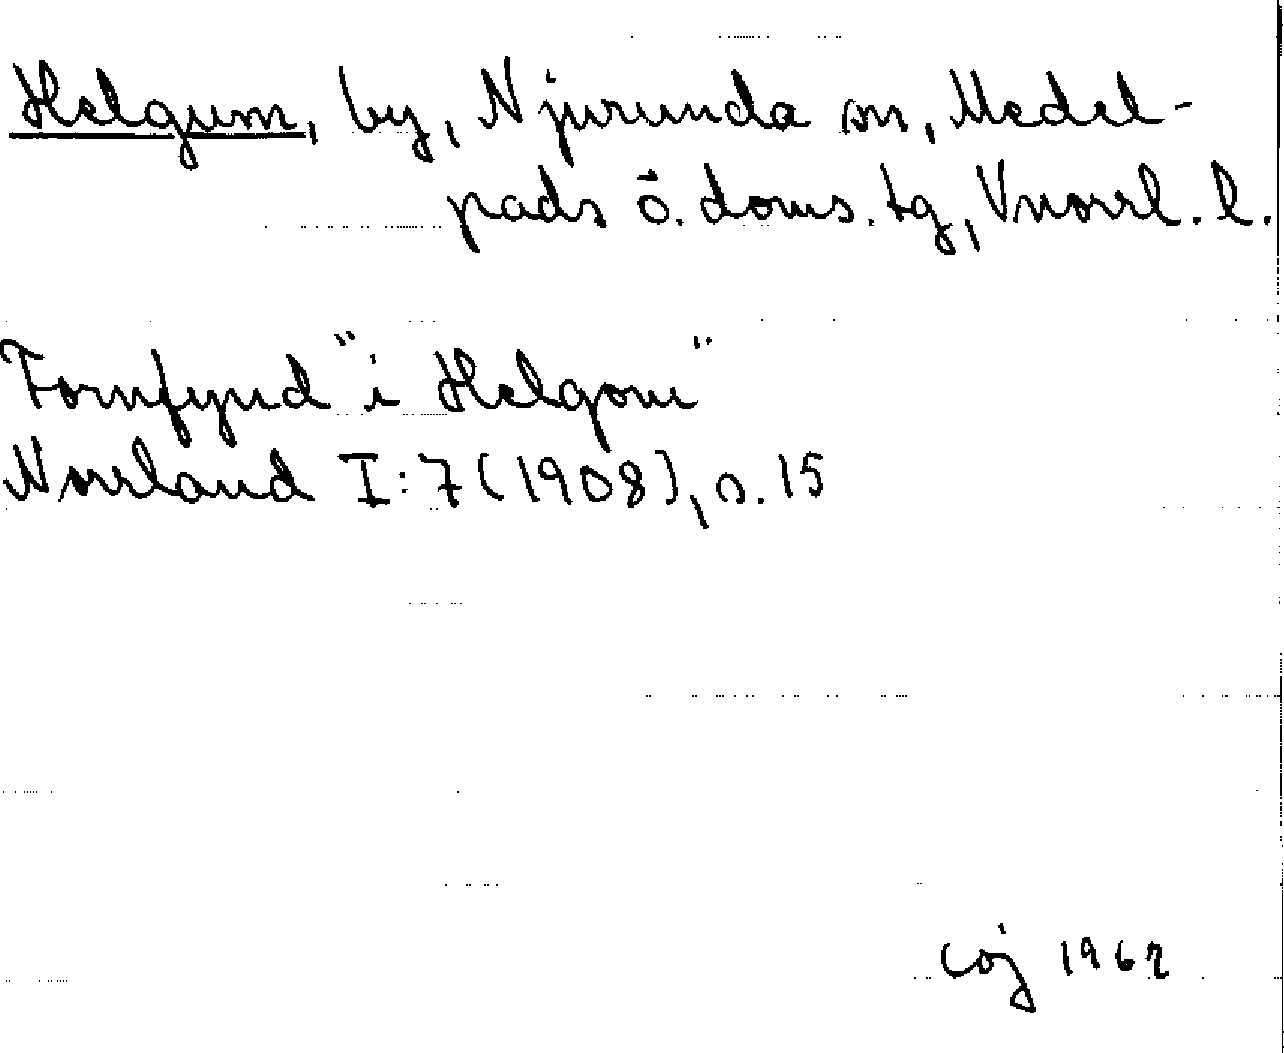 Helgum, by, Njurunda sn, Medel-
pads ö. doms. tg, Vnorrl. l.
Fornfynd "i Helgom"
Norrland I:7 (1908), s. 15
1962